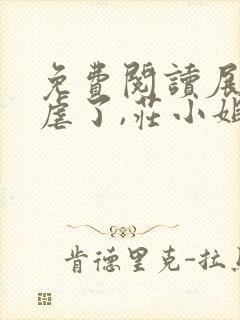 免費閱讀展
虐了,莊小姐
肯德里克-拉馬